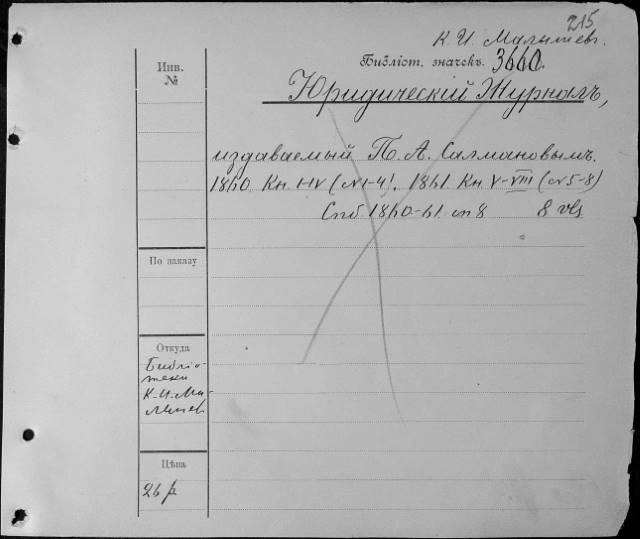 215
К. И. Малышев.
Библіот. значекъ. 3660.
Инв.
№
Юридическій Журналъ,
издаваемый П. А. Салмановымъ.
1860. Кн. I-IV (№1-4). 1861. Кн V-VIII (№5-8)
Спб 1860-61 in 8 8 vls
По заказу
Откуда
Библіо-
теки
К. И. Ма-
лышев
Цѣна
26 р